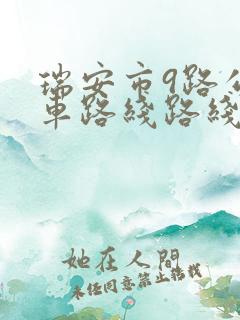 瑞安市9路公
车路线路线
她在人間
未经同意禁止转载